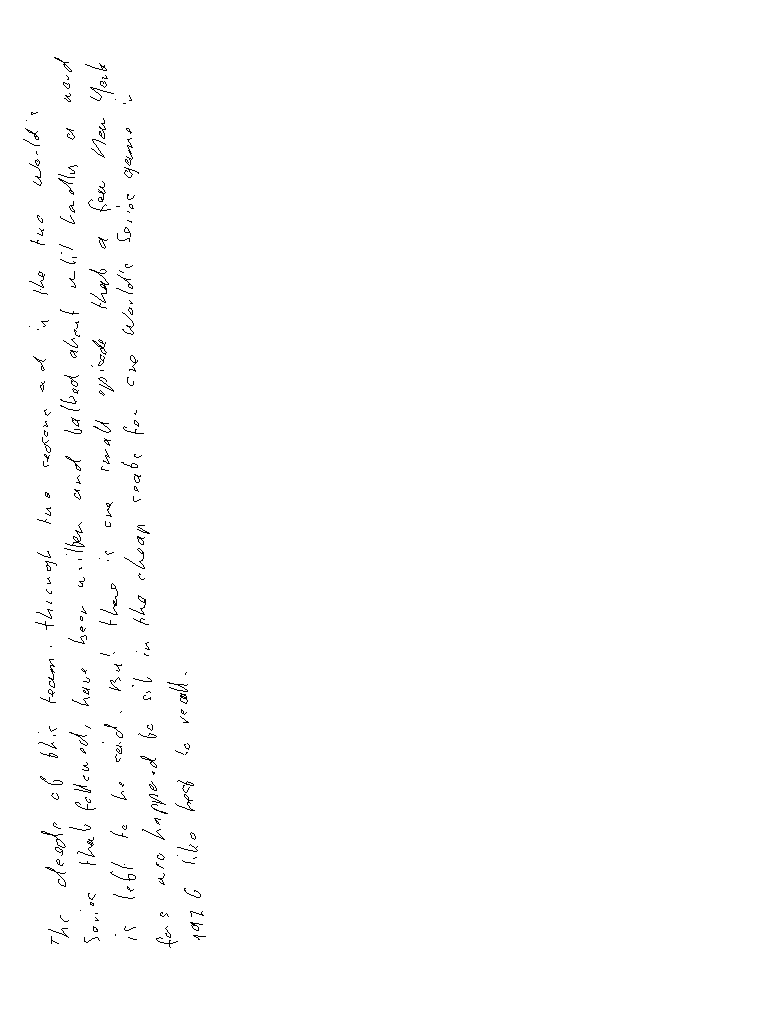 The deeds of this team, through two seasons and in the two world's
Series that followed, have been written and talked about until hardly a word
is left to be said. But there is one small episode that a few New York
fans who happened to sit in the cheap seats for one World's Series game in
1926 like best to recall.